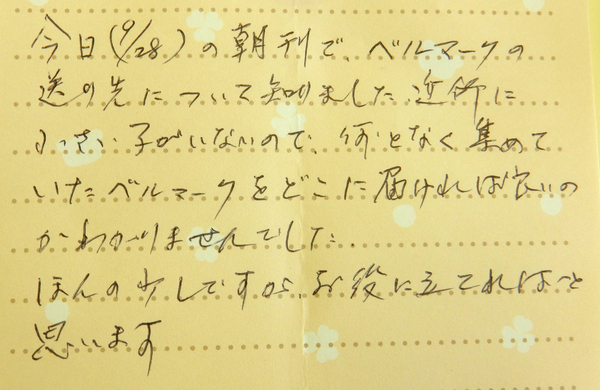 今日(9/28)の朝刊で、ベルマークの
送り先について知りました。近所に
小さい子がいないので、何となく集めて
いたベルマークをどこに届ければ良いの
かわかりませんでした。
ほんの少しですが、お役に立てればと
思います